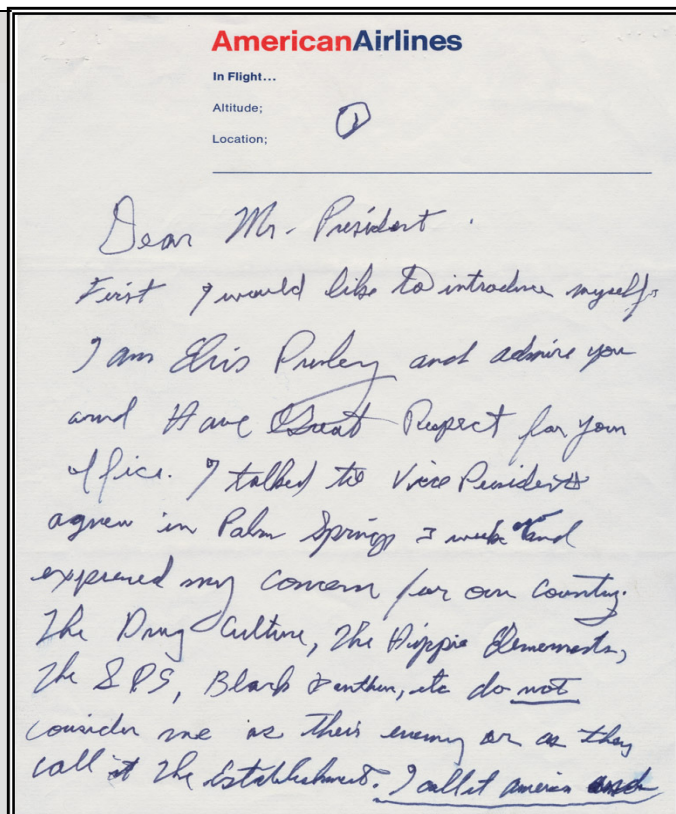 AmericanAirlines
In Flight...
Altitude;
Location;
1
Dear Mr. President.
First I would like to introduce myself.
I am Elvis Presley and admire you
and Have Great Respect for your
office. I talked to Vice President
agnew in Palm Springs 3 weeks ago and
expressed my concern for our country.
The Drug Culture, The Hippie Elements,
The SDS, Black Panthers, etc do not
consider me as their enemy or as they
call it The Establishment. I call it america and